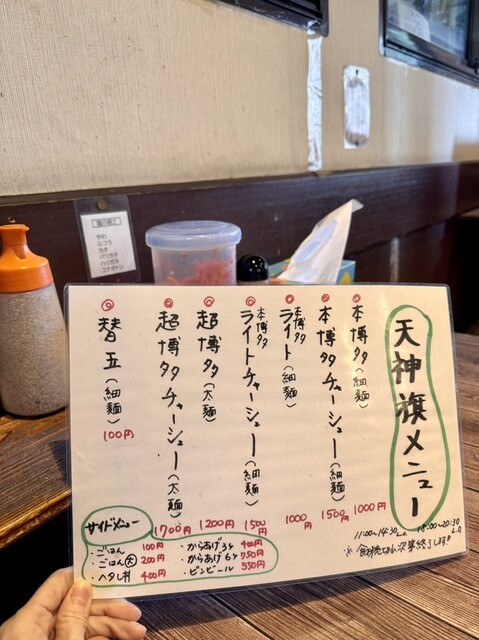 天神旗メニュー
◎ 本博多(細麺) 1000円
◎ 本博多チャーシュー(細麺) 1500円
◎ 本博多ライト(細麺) 1000円
◎ 本博多ライトチャーシュー(細麺) 1500円
◎ 超博多(太麺) 1200円
◎ 超博多チャーシュー(太麺) 1700円
◎ 替玉(細麺) 100円
サイドメニュー
・ごはん 100円
・ごはん大 200円
・ヘタレ丼 400円
・からあげ3ヶ 400円
・からあげ6ヶ 750円
・ビンビール 550円
11:00~14:30 L.O
18:00~20:30 L.O
※ 切れ次第終了します!!
やわ
ふつう
カタ
バリカタ
ハリガネ
コナオトシ